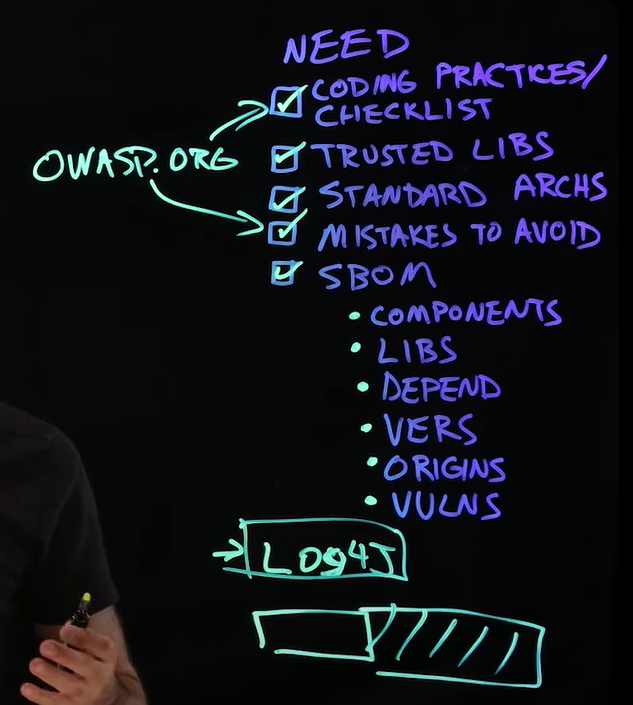 NEED
CODING PRACTICES/
CHECKLIST
OWASP.ORG
TRUSTED LIBS
STANDARD ARCHS
MISTAKES TO AVOID
SBOM
• COMPONENTS
• LIBS
• DEPEND
• VERS
• ORIGINS
• VULNS
LOg4J